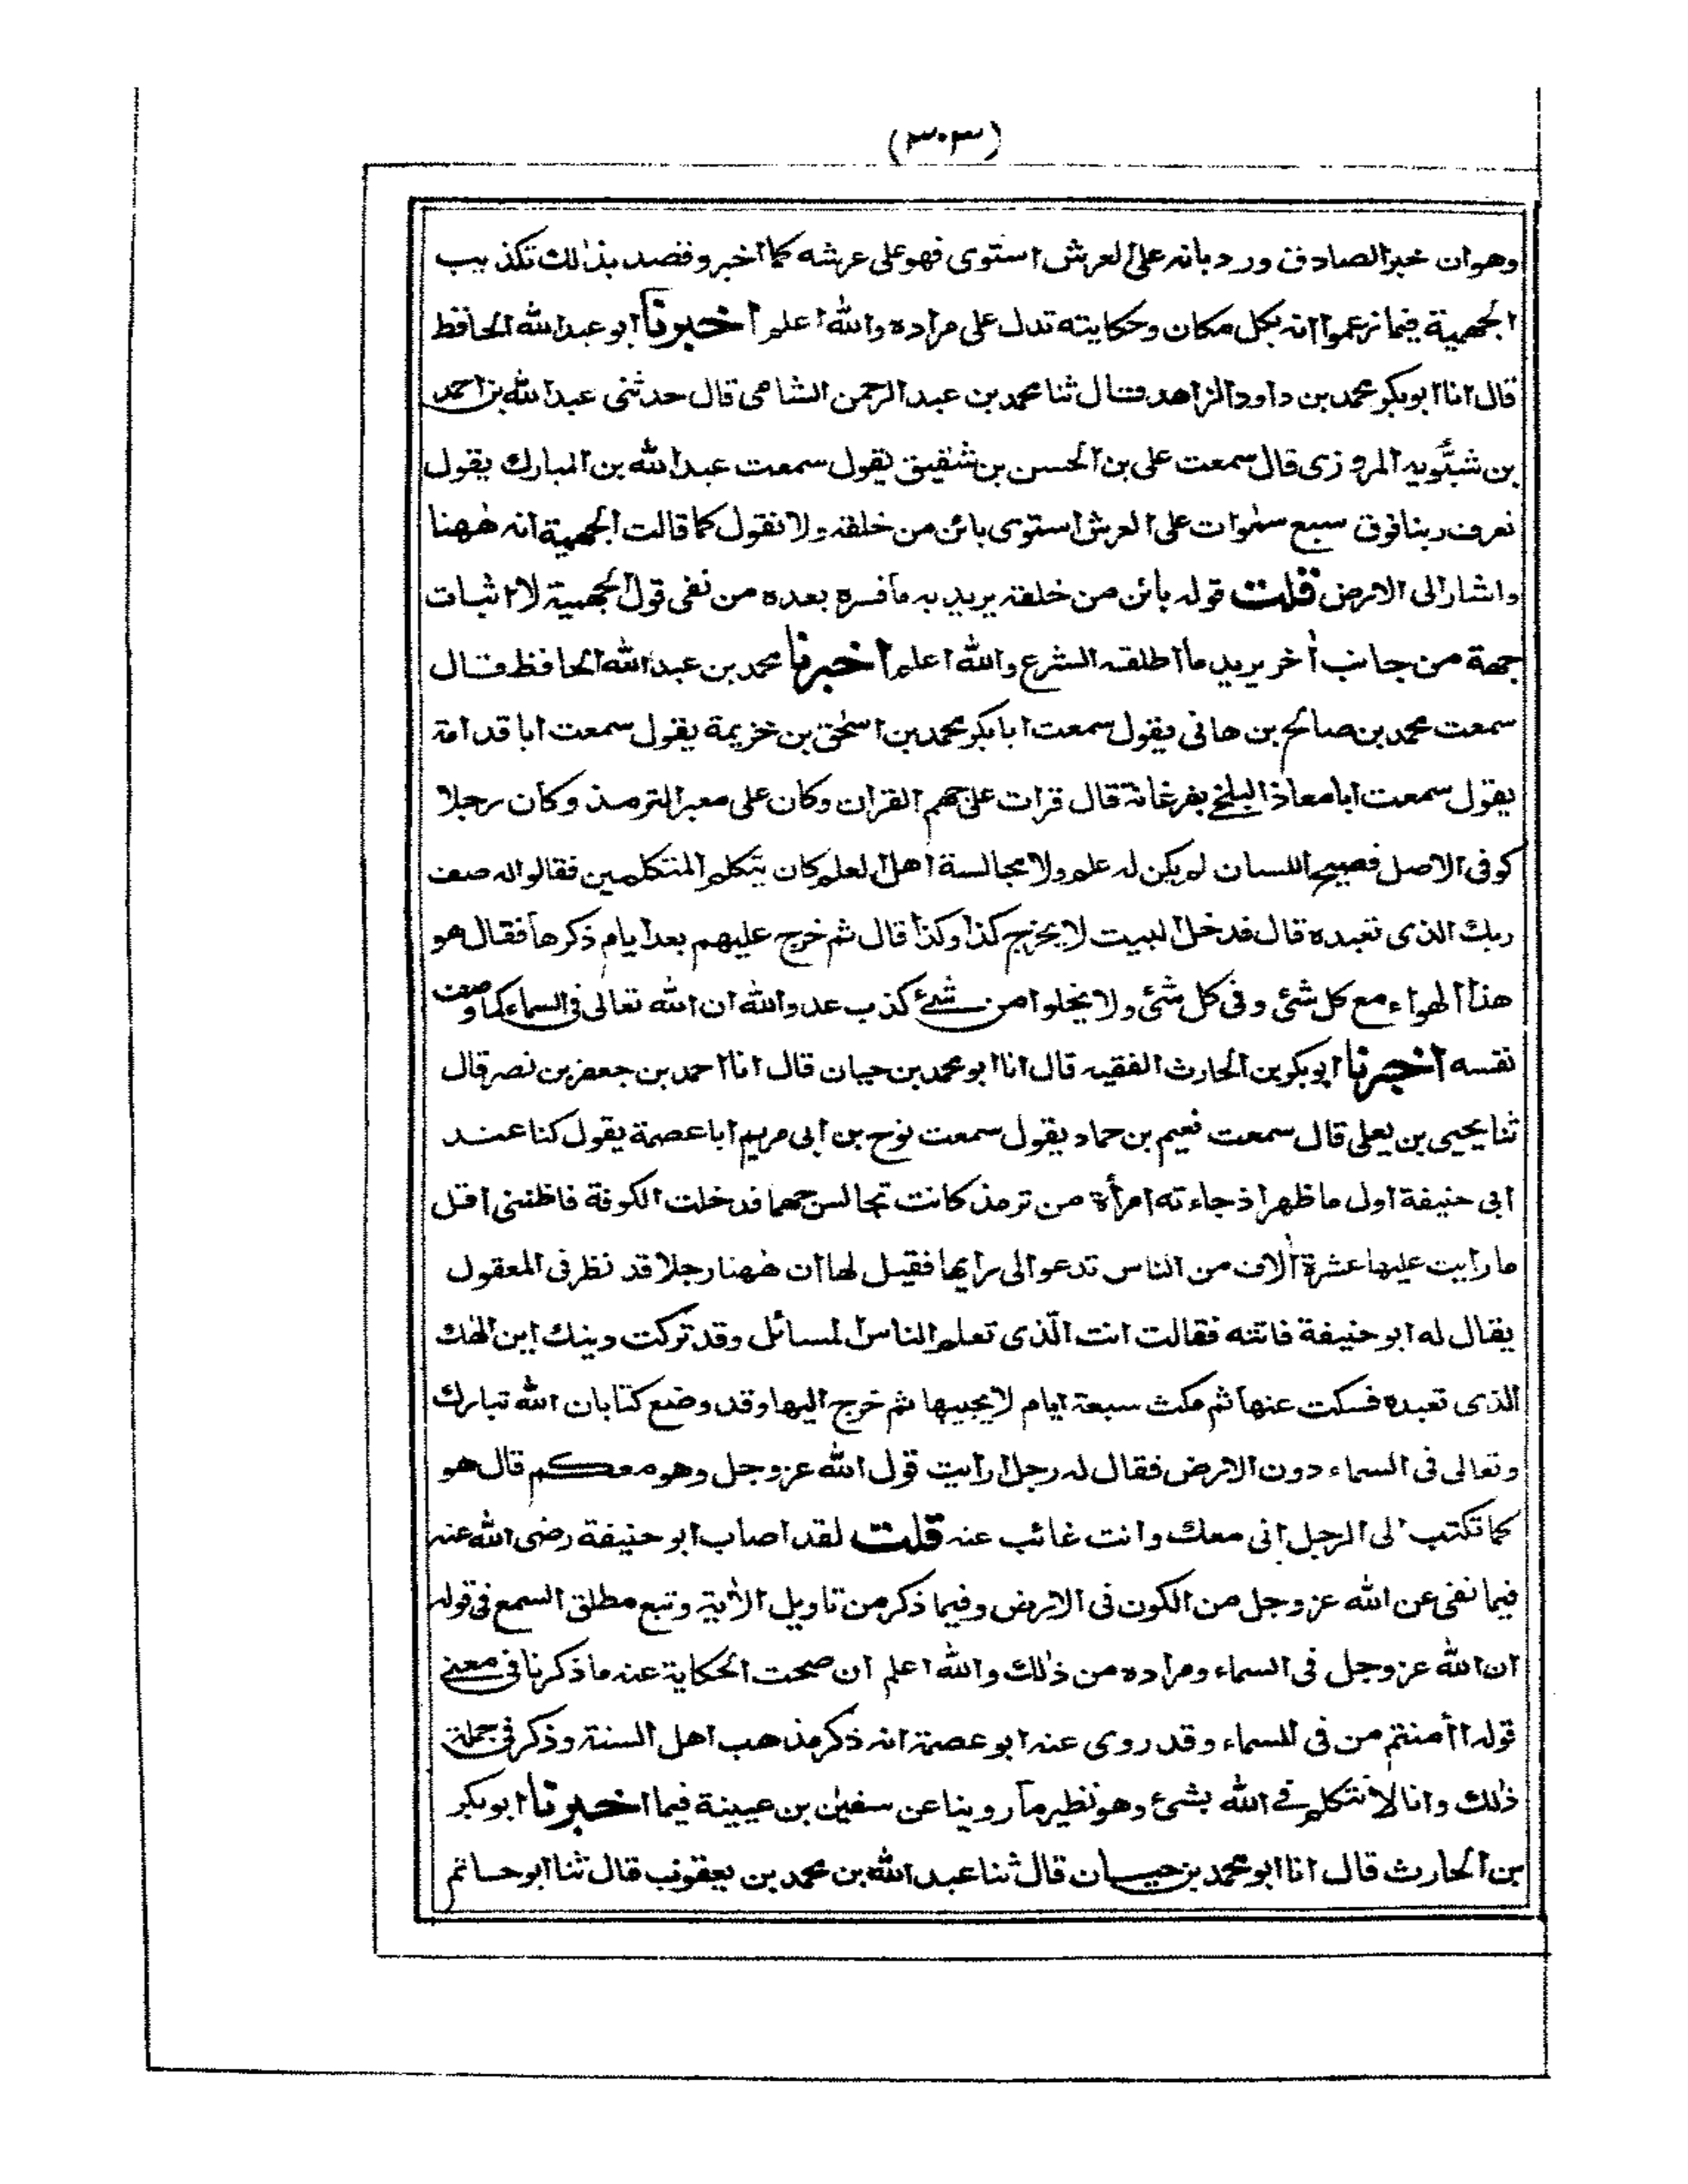 (٣٠٣)
وهو ان خبر الصادق ورد بانه على العرش استوى فهو على عرشه كما اخبر وقصد بذلك تكذيب
الجهمية فيما زعموا انه بكل مكان وحكايته تدل على مراده والله اعلم اخبرنا ابو عبد الله الحافظ
قال انا ابو بكر محمد بن داود الزاهد قال ثنا محمد بن عبد الرحمن الشامى قال حدثنى عبد الله بن احمد
بن شبّويه المروزى قال سمعت على بن الحسن بن شقيق يقول سمعت عبد الله بن المبارك يقول
نعرف ربنا فوق سبع سمٰوات على العرش استوى بائن من خلقه ولا نقول كما قالت الجهمية انه هٰهنا
واشار الى الارض قلت قوله بائن من خلقه يريد به ما فسره بعده من نفى قول الجهمية لا اثبات
جهة من جانب اٰخر يريد ما اطلقه الشرع والله اعلم اخبرنا محمد بن عبد الله الحافظ قال
سمعت محمد بن صالح بن هانى يقول سمعت ابا بكر محمد بن اسحٰق بن خزيمة يقول سمعت ابا قدامة
يقول سمعت ابا معاذ البلخى بفرغانة قال قرات على جهم القران وكان على معبر الترمذ وكان رجلا
كوفى الاصل فصيح اللسان لم يكن له علم ولا مجالسة اهل العلم كان يتكلم المتكلمين فقالوا له صف
ربك الذى تعبده قال فدخل البيت لا يخرج كذا وكذا قال ثم خرج عليهم بعد ايام ذكرها فقال هو
هذا الهواء مع كل شئ وفى كل شئ ولا يخلوا من شئ كذب عدو الله ان الله تعالى فى السماء كما وصف
نفسه اخبرنا ابو بكر بن الحارث الفقيه قال انا ابو محمد بن حيان قال انا احمد بن جعفر بن نصر قال
ثنا يحيى بن يعلى قال سمعت نعيم بن حماد يقول سمعت نوح بن ابى مريم ابا عصمة يقول كنا عند
ابى حنيفة اول ما ظهر اذ جاءته امرأة من ترمذ كانت تجالس جهما فدخلت الكوفة فاظننى اقل
ما رايت عليها عشرة اٰلاف من الناس تدعو الى رايها فقيل لها ان هٰهنا رجلا قد نظر فى المعقول
يقال له ابو حنيفة فاتته فقالت انت الّذى تعلم الناس المسائل وقد تركت دينك اين الٰهك
الذى تعبده فسكت عنها ثم مكث سبعة ايام لا يجيبها ثم خرج اليها وقد وضع كتابا ان الله تبارك
وتعالى فى السماء دون الارض فقال له رجل ارايت قول الله عز وجل وهو معكم قال هو
كما تكتب الى الرجل انى معك وانت غائب عنه قلت لقد اصاب ابو حنيفة رضى الله عنه
فيما نفى عن الله عز وجل من الكون فى الارض وفيما ذكر من تاويل الاٰية وتبع مطلق السمع فى قوله
ان الله عز وجل فى السماء ومراده من ذٰلك والله اعلم ان صحت الحكاية عنه ما ذكرنا فى معنى
قوله اأمنتم من فى السماء وقد روى عنه ابو عصمة انه ذكر مذهب اهل السنة وذكر فى جملة
ذٰلك وانا لا نتكلم فى الله بشئ وهو نظير ما روينا عن سفيٰن بن عيينة فيما اخبرنا ابو بكر
بن الحارث قال انا ابو محمد بن حيان قال ثنا عبد الله بن محمد بن يعقوب قال ثنا ابو حاتم